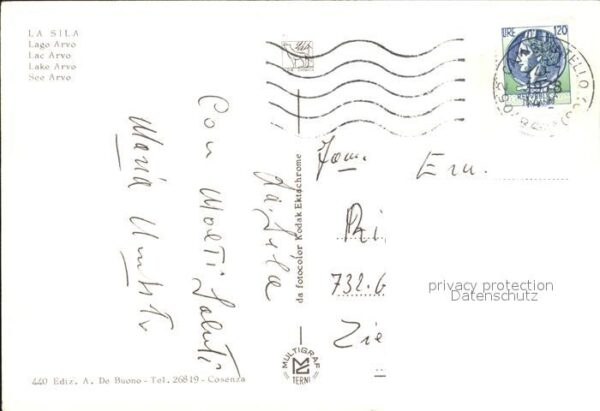 LA SILA
Lago Arvo
Lac Arvo
Lake Arvo
See Arvo
LIRE 120
1973
Con Molti Saluti
da Sila
Maria
da fotocolor Kodak Ektachrome
Fam.
732.6
privacy protection
Datenschutz
MULTIGRAF
TERNI
440 Ediz. A. De Buono - Tel. 26819 - Cosenza